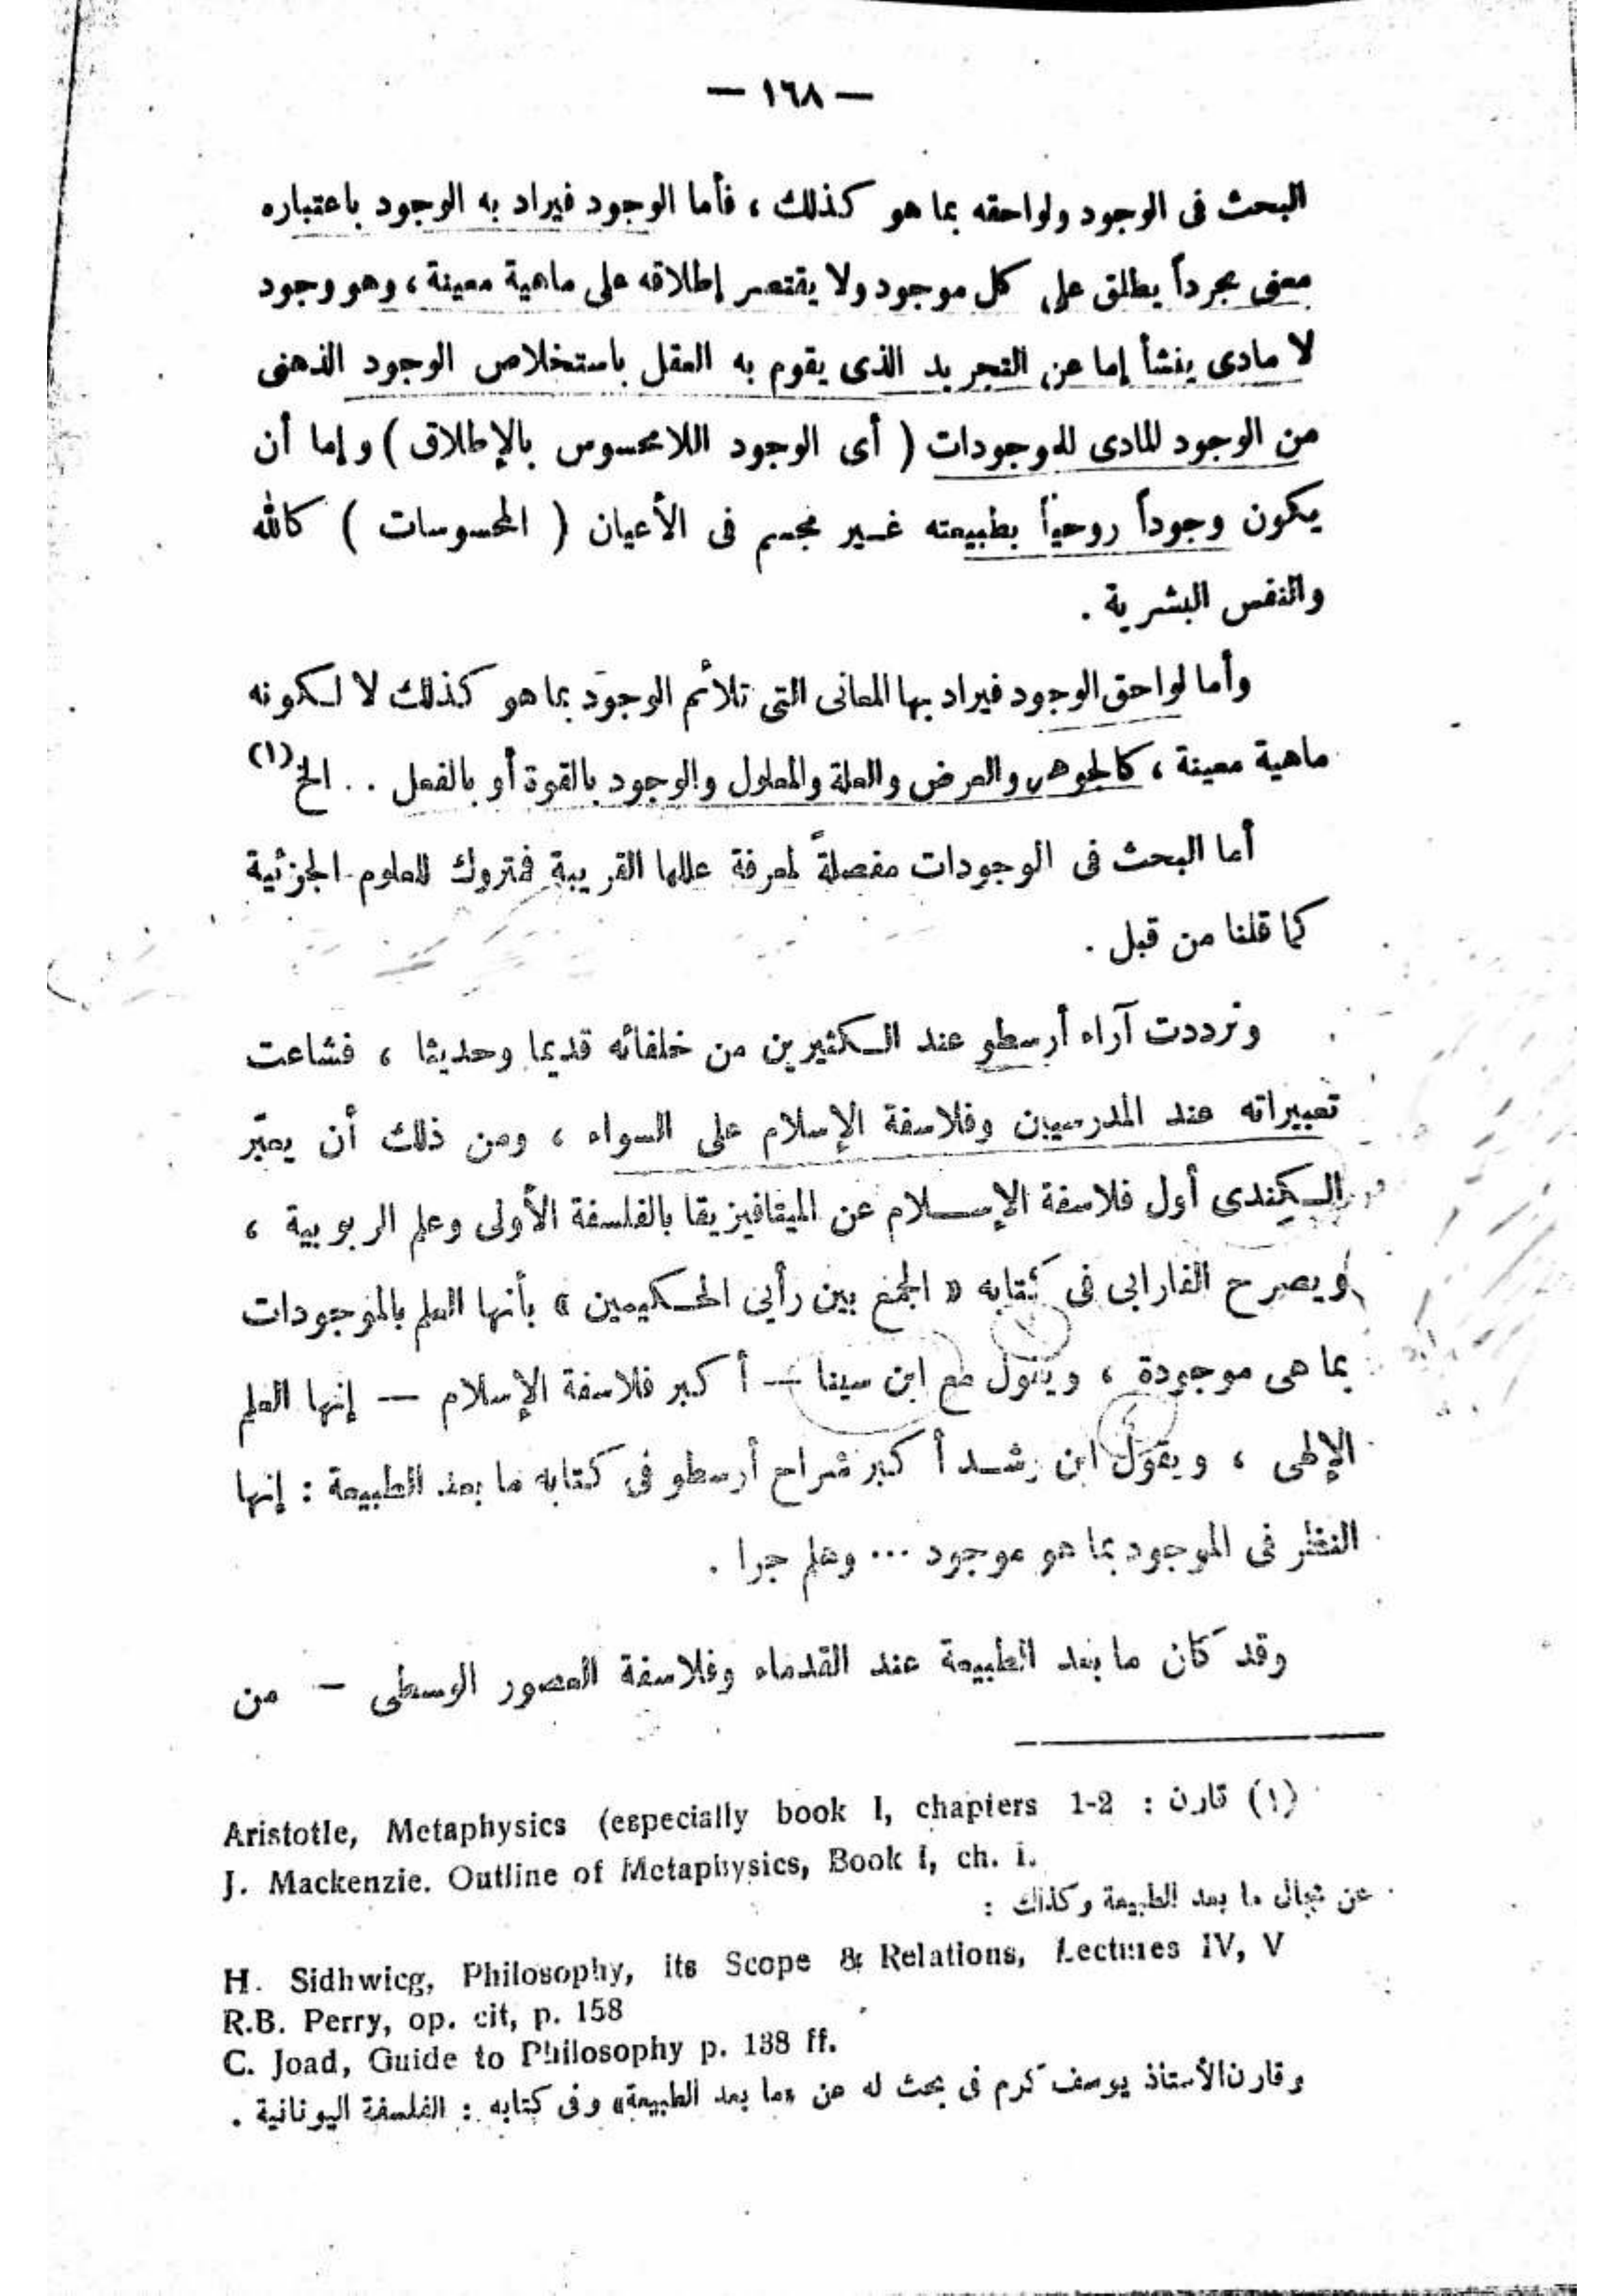 — ١٦٨ —
البحث فى الوجود ولواحقه بما هو كذلك ، فأما الوجود فيراد به الوجود باعتباره
معنى مجرداً يطلق على كل موجود ولا يقتصر إطلاقه على ماهية معينة ، وهو وجود
لا مادى ينشأ إما عن التجريد الذى يقوم به العقل باستخلاص الوجود الذهنى
من الوجود المادى للموجودات ( أى الوجود اللامحسوس بالإطلاق ) وإما أن
يكون وجوداً روحياً بطبيعته غير مجسم فى الأعيان ( المحسوسات ) كالله
والنفس البشرية .
وأما لواحق الوجود فيراد بها المعانى التى تلائم الوجود بما هو كذلك لا لكونه
ماهية معينة ، كالجوهر والعرض والعلة والمعلول والوجود بالقوة أو بالفعل . . الخ (١)
أما البحث فى الوجودات مفصلةً لمعرفة عللها القريبة فمتروك للعلوم الجزئية
كما قلنا من قبل .
وترددت آراء أرسطو عند الكثيرين من خلفائه قديما وحديثا ، فشاعت
تعبيراته عند المدرسيين وفلاسفة الإسلام على السواء ، ومن ذلك أن يعبّر
الكندى أول فلاسفة الإسلام عن الميتافيزيقا بالفلسفة الأولى وعلم الربوبية ،
ويصرح الفارابى فى كتابه « الجمع بين رأيى الحكيمين » بأنها العلم بالموجودات
بما هى موجودة ، ويقول مع ابن سينا — أكبر فلاسفة الإسلام — إنها العلم
الإلهى ، ويقول ابن رشد أكبر شراح أرسطو فى كتابه ما بعد الطبيعة : إنها
النظر فى الموجود بما هو موجود ... وهلم جرا .
وقد كان ما بعد الطبيعة عند القدماء وفلاسفة العصور الوسطى — من
(١) قارن : Aristotle, Metaphysics (especially book I, chapters 1-2
J. Mackenzie. Outline of Metaphysics, Book I, ch. i.
عن مجال ما بعد الطبيعة وكذلك :
H. Sidhwicg, Philosophy, its Scope & Relations, Lectures IV, V
R.B. Perry, op. cit, p. 158
C. Joad, Guide to Philosophy p. 138 ff.
وقارن الأستاذ يوسف كرم فى بحث له عن «ما بعد الطبيعة» وفى كتابه : الفلسفة اليونانية .